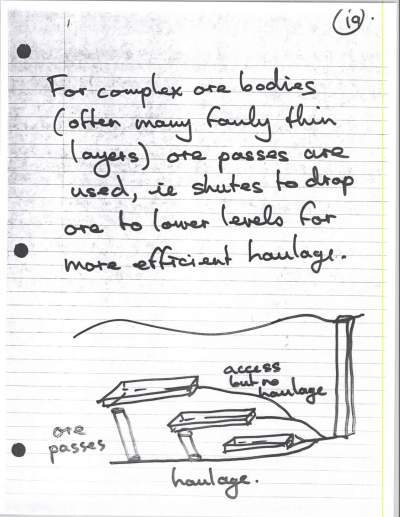 (19).
For complex ore bodies
(often many fairly thin
layers) ore passes are
used, ie shutes to drop
ore to lower levels for
more efficient haulage.
access
but no
haulage
ore
passes
haulage.